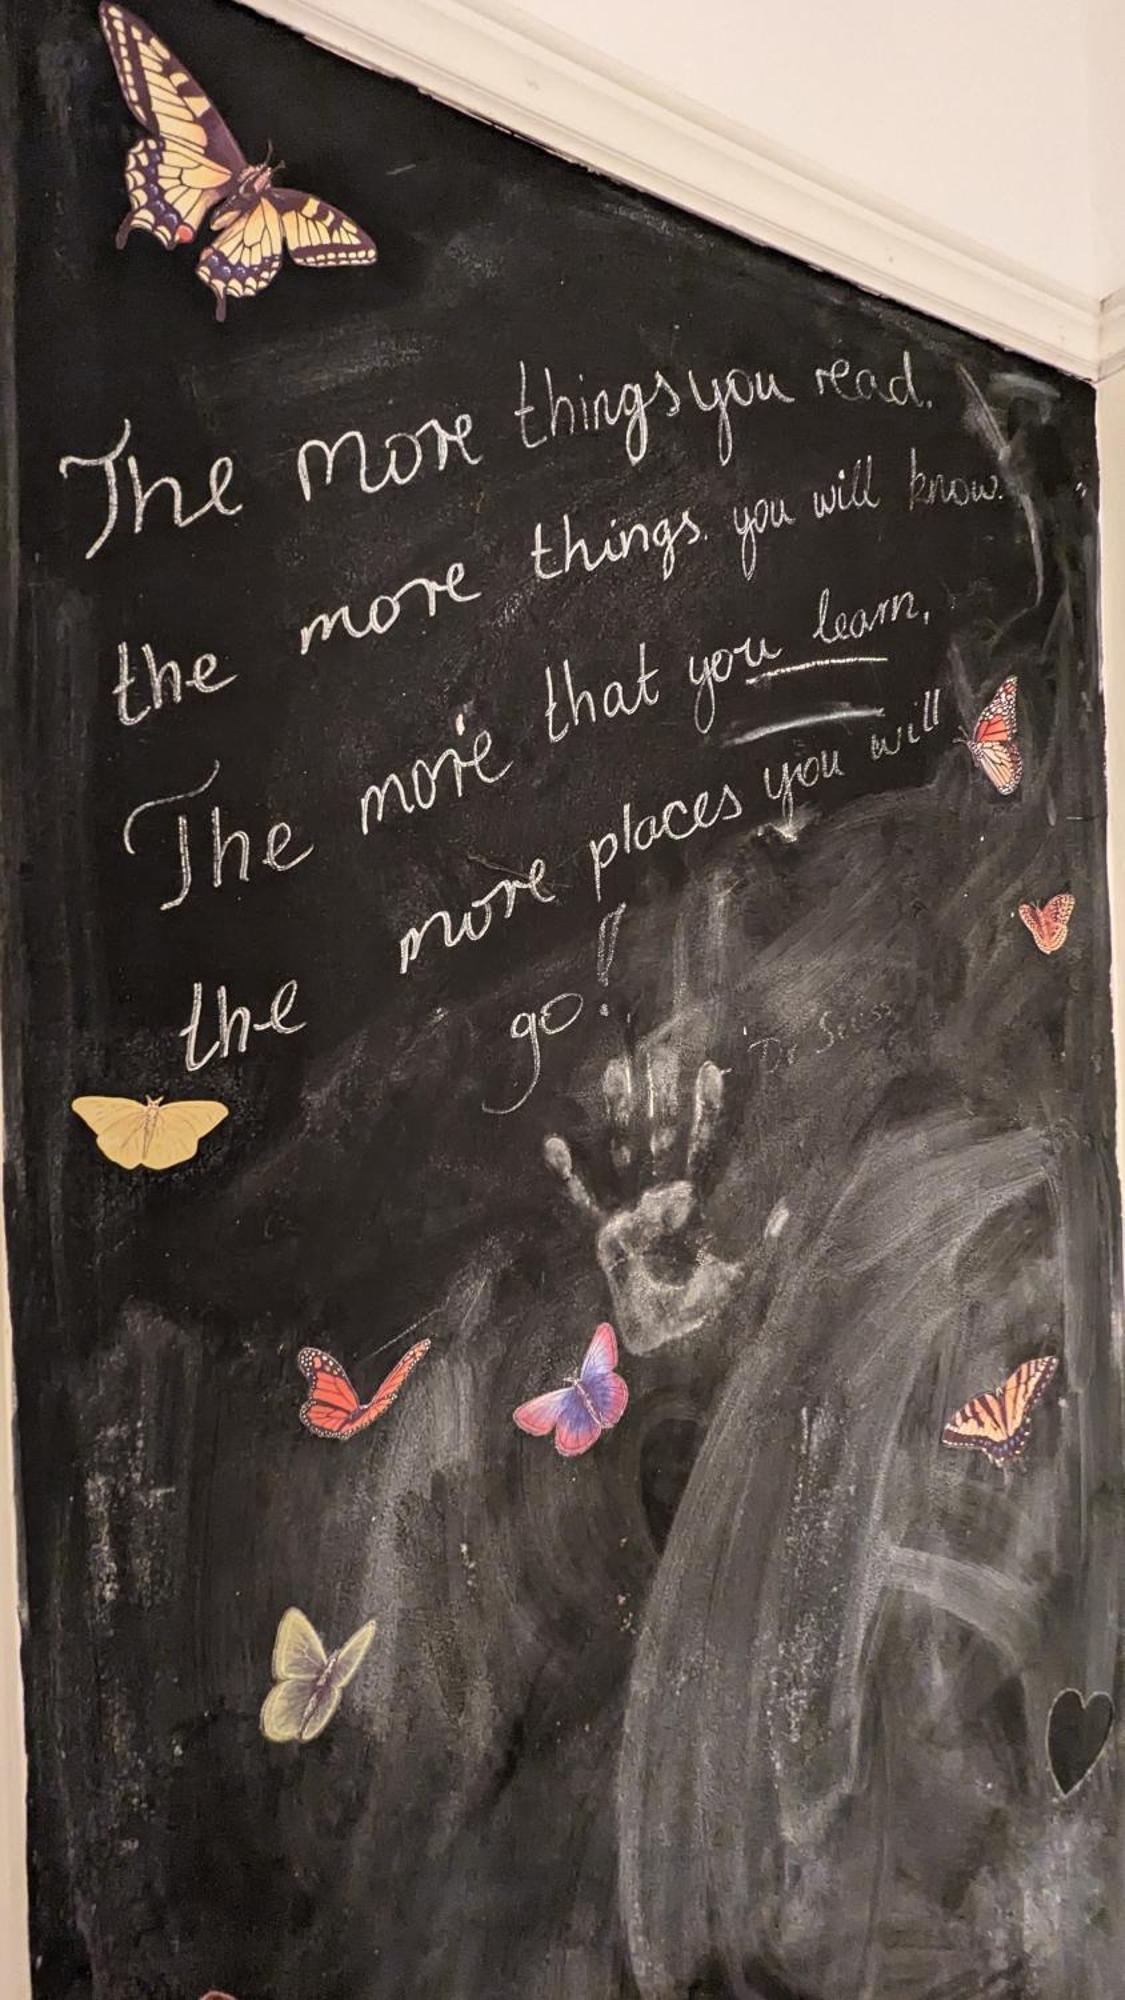 The more things you read.
the more things. you will know.
The more that you learn,
the more places you will
go!
Dr Seuss